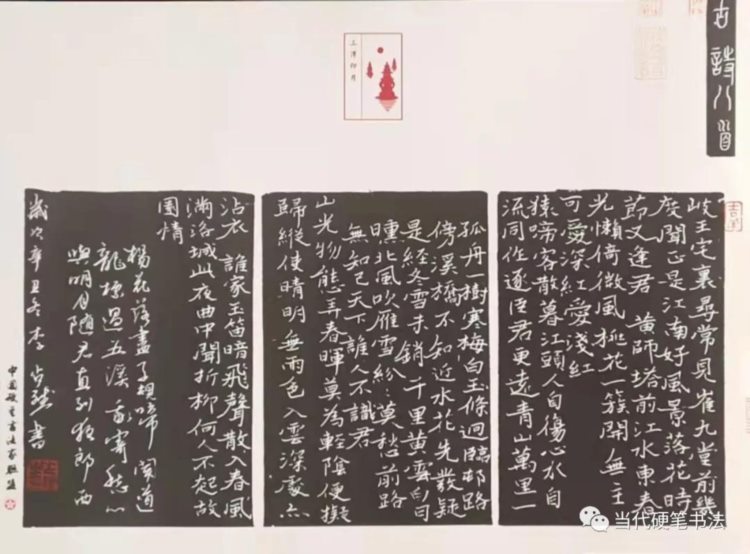 古詩八首
三潭印月
岐王宅裏尋常見崔九堂前幾
度聞正是江南好風景落花時
節又逢君 黃師塔前江水東春
光懶倚微風桃花一簇開無主
可愛深紅愛淺紅
猿啼客散暮江頭人自傷心水自
流同作逐臣君更遠青山萬里一
孤舟一樹寒梅白玉條迥臨邨路
傍溪橋不知近水花先發疑
是經冬雪未銷千里黃雲白日
曛北風吹雁雪紛〻莫愁前路
無知己天下誰人不識君
山光物態弄春暉莫為輕陰便擬
歸縱使晴明無雨色入雲深處亦
沾衣 誰家玉笛暗飛聲散入春風
滿洛城此夜曲中聞折柳何人不起故
園情
楊花落盡子規啼 聞道
龍標過五溪 我寄愁心
與明月隨君直到夜郎西
歲次辛丑冬李 書
中国硬笔书法家联盟
当代硬笔书法